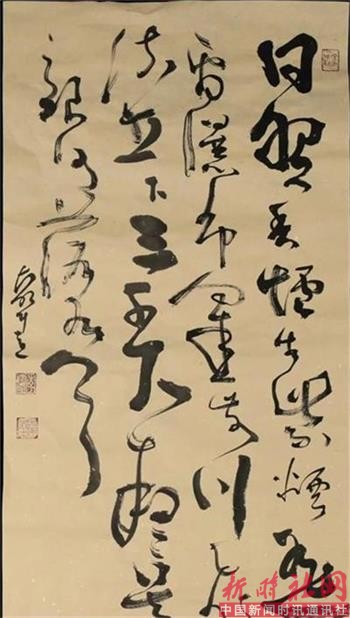 日照香爐生紫煙遙
看瀑布掛前川飛
流直下三千尺疑是
銀河落九天
新时社网
中国新闻时讯通讯社